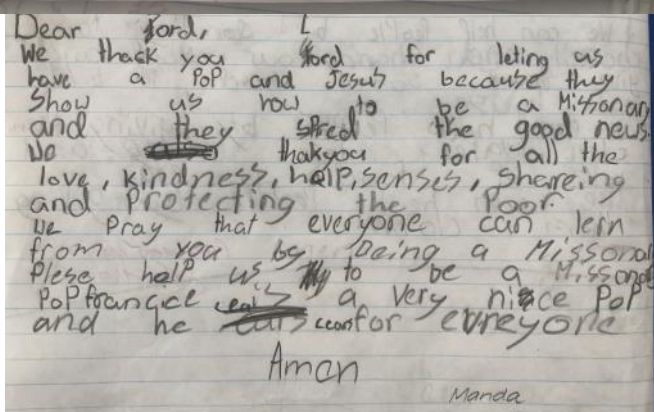 Dear Lord, L
We thack you Lord for leting us
have a PoP and Jesus because they
Show us how to be a Missonary
and they spred the good news.
We thakyou for all the
love, kindness, help, senses, shareing
and Protecting the Poor
We Pray that everyone can lern
from you by being a Missonar
Plese help us to be a Missonar
PoPfrancice a very nice PoP
and he for evreyone
Amen
Manda